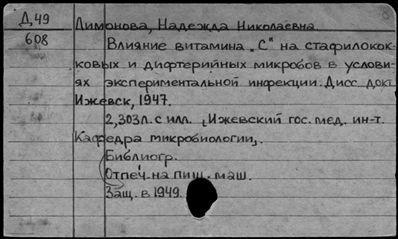 Д.49
608
Лимонова, Надежда Николаевна
Влияние витамина „С" на стафилокок-
ковых и дифтерийных микробов в услови-
ях экспериментальной инфекции. Дисс. докт.
Ижевск, 1947.
2,303л. с илл. (Ижевский гос. мед. ин-т.
Кафедра микробиологии).
Библиогр.
Отпеч. на пиш. маш.
Защ. в 1949.